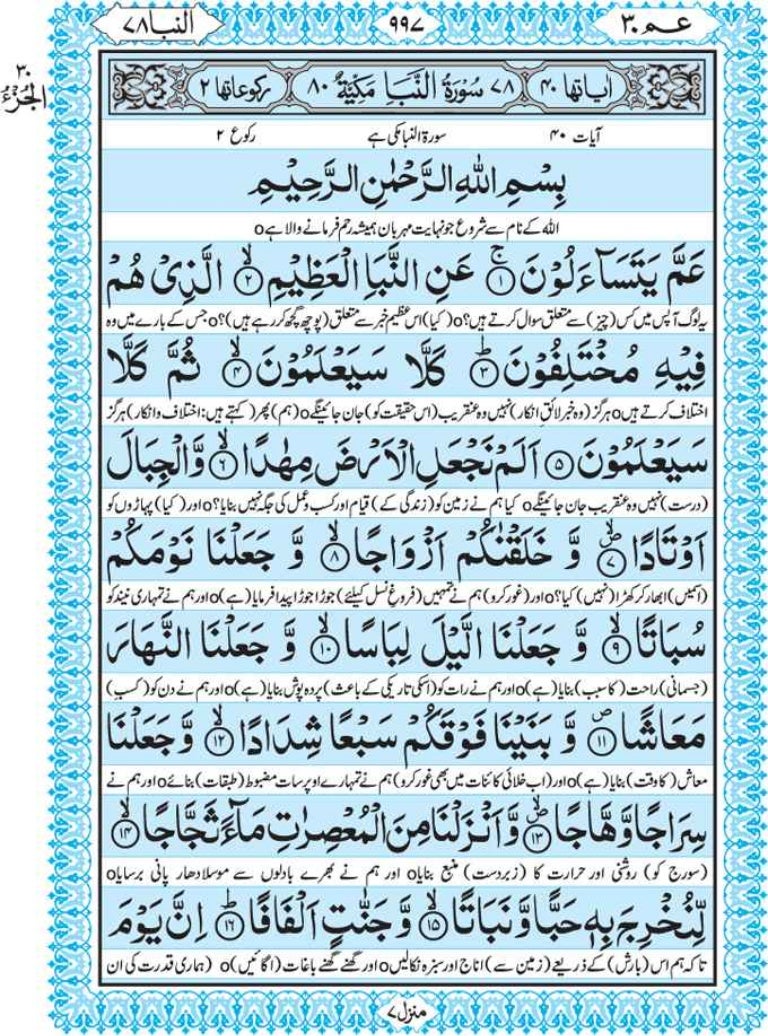 عـم ٣٠
٩٩٧
النبا ٧٨
٣٠
الجزء
اٰیاتها ٤٠
٧٨ سُوْرَةُ النَّبَاِ مَكِّيَّةٌ ٨٠
ركوعاتها ٢
آیات ۴۰ سورۃ النبا مکی ہے رکوع ۲
بِسْمِ اللّٰهِ الرَّحْمٰنِ الرَّحِيْمِ
اللہ کے نام سے شروع جو نہایت مہربان ہمیشہ رحم فرمانے والا ہے o
عَمَّ يَتَسَآءَلُوْنَ ۚ﴿١﴾ عَنِ النَّبَاِ الْعَظِيْمِ ۙ﴿٢﴾ الَّذِیْ هُمْ
یہ لوگ آپس میں کس (چیز) سے متعلق سوال کرتے ہیں؟ o (کیا) اس عظیم خبر سے متعلق (پوچھ گچھ کر رہے ہیں)؟ o جس کے بارے میں وہ
فِيْهِ مُخْتَلِفُوْنَ ؕ﴿٣﴾ كَلَّا سَيَعْلَمُوْنَ ۙ﴿٤﴾ ثُمَّ كَلَّا
اختلاف کرتے ہیں o ہرگز (وہ خبر لائقِ انکار) نہیں وہ عنقریب (اس حقیقت کو) جان جائینگے o (ہم) پھر (کہتے ہیں: اختلاف و انکار) ہرگز
سَيَعْلَمُوْنَ ﴿٥﴾ اَلَمْ نَجْعَلِ الْاَرْضَ مِهٰدًا ۙ﴿٦﴾ وَّ الْجِبَالَ
(درست) نہیں وہ عنقریب جان جائینگے o کیا ہم نے زمین کو (زندگی کے) قیام اور کسب و عمل کی جگہ نہیں بنایا؟ o اور (کیا) پہاڑوں کو
اَوْتَادًا ۪ۙ﴿٧﴾ وَّ خَلَقْنٰكُمْ اَزْوَاجًا ۙ﴿٨﴾ وَّ جَعَلْنَا نَوْمَكُمْ
(اسمیں) ابھار کر کھڑا (نہیں) کیا؟ o اور (غور کرو) ہم نے تمہیں (فروغِ نسل کیلئے) جوڑا جوڑا پیدا فرمایا (ہے) o اور ہم نے تمہاری نیند کو
سُبَاتًا ۙ﴿٩﴾ وَّ جَعَلْنَا الَّيْلَ لِبَاسًا ۙ﴿١٠﴾ وَّ جَعَلْنَا النَّهَارَ
(جسمانی) راحت (کا سبب) بنایا (ہے) o اور ہم نے رات کو (اسکی تاریکی کے باعث) پردہ پوش بنایا (ہے) o اور ہم نے دن کو (کسبِ)
مَعَاشًا ۪﴿١١﴾ وَّ بَنَيْنَا فَوْقَكُمْ سَبْعًا شِدَادًا ۙ﴿١٢﴾ وَّ جَعَلْنَا
معاش (کا وقت) بنایا (ہے) o اور (اب خلائی کائنات میں بھی غور کرو) ہم نے تمہارے اوپر سات مضبوط (طبقات) بنائے o اور ہم نے
سِرَاجًا وَّهَّاجًا ۪ۙ﴿١٣﴾ وَّ اَنْزَلْنَا مِنَ الْمُعْصِرٰتِ مَآءً ثَجَّاجًا ۙ﴿١٤﴾
(سورج کو) روشنی اور حرارت کا (زبردست) منبع بنایا o اور ہم نے بھرے بادلوں سے موسلادھار پانی برسایا o
لِّنُخْرِجَ بِهٖ حَبًّا وَّ نَبَاتًا ۙ﴿١٥﴾ وَّ جَنّٰتٍ اَلْفَافًا ؕ﴿١٦﴾ اِنَّ يَوْمَ
تاکہ ہم اس (بارش) کے ذریعے (زمین سے) اناج اور سبزہ نکالیں o اور گھنے گھنے باغات (اگائیں) o (ہماری قدرت کی ان
منزل ٧